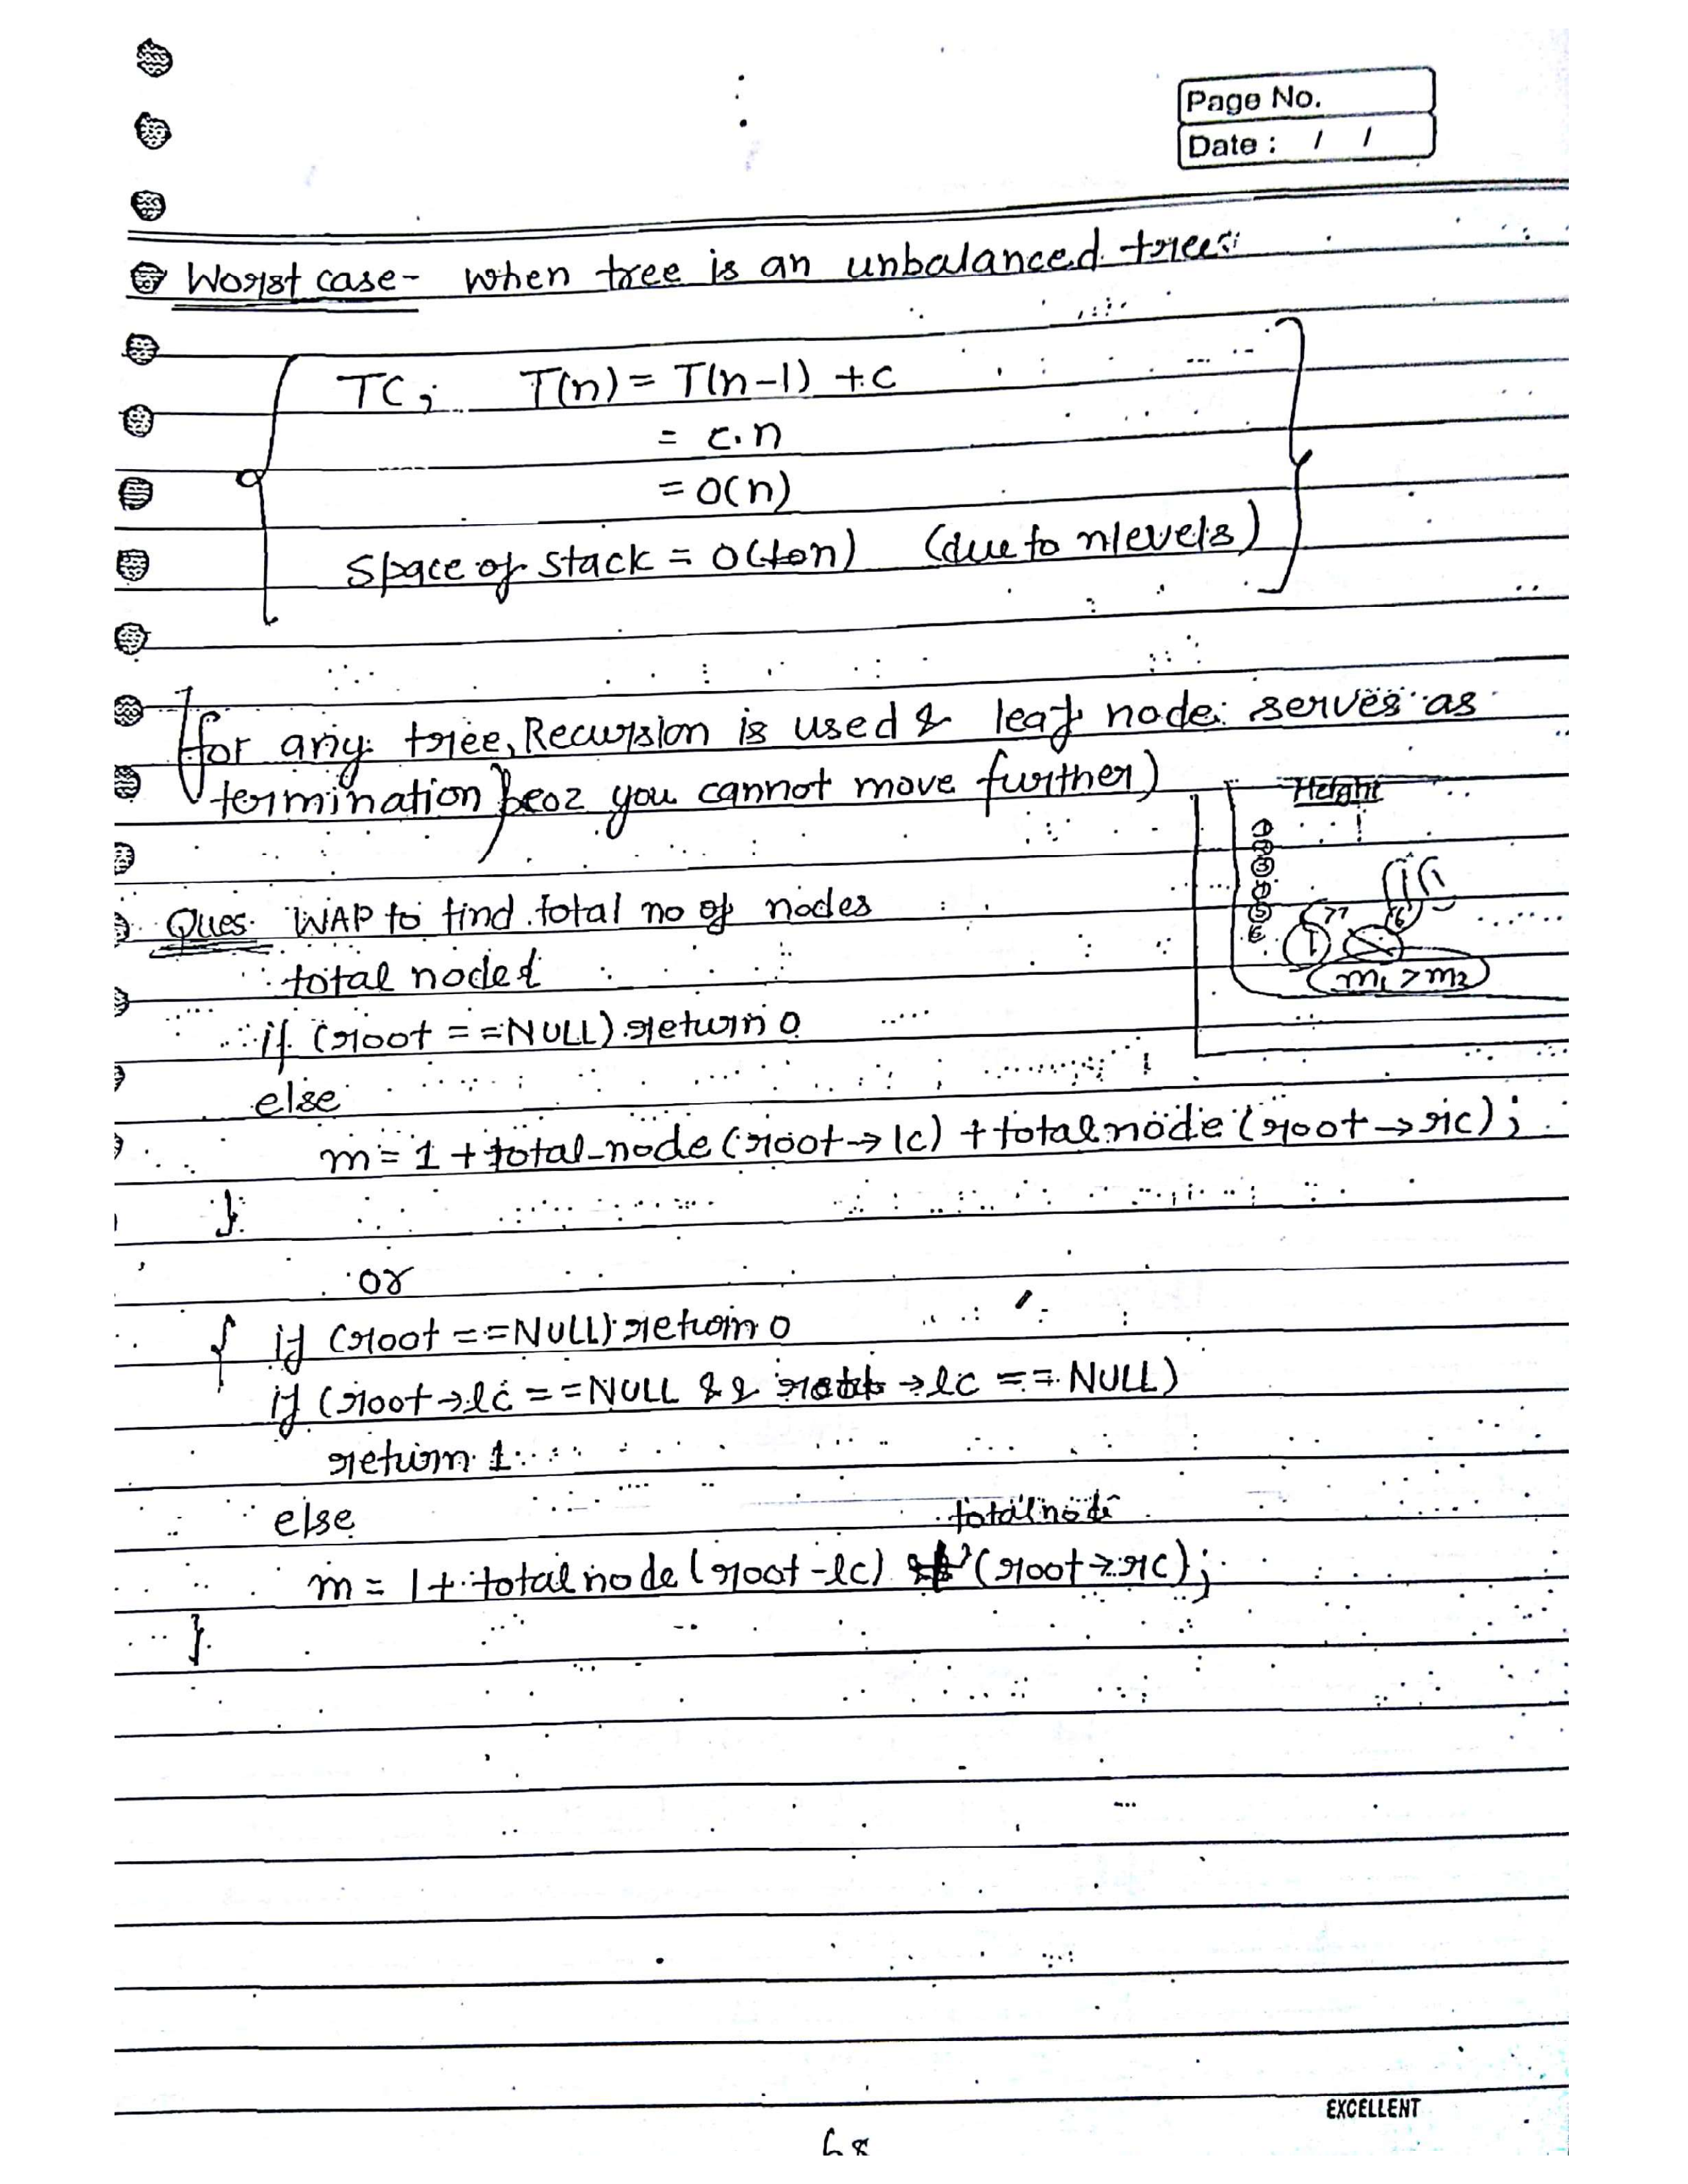 Page No.
Date : / /
Worst case - when tree is an unbalanced tree
TC; T(n) = T(n-1) + c
= c.n
= O(n)
Space of stack = O(n) (due to n levels)
for any tree, Recursion is used & leaf node serves as
termination (becoz you cannot move further)
Height
1
2
3
4
5
6
m1 > m2
Ques. WAP to find total no of nodes
total node {
if (root == NULL) return 0
else
m = 1 + total_node (root → lc) + total node (root → rc);
}
or
{ if (root == NULL) return 0
if (root → lc == NULL && root → lc == NULL)
return 1
else
total node
m = 1 + total node (root - lc) + (root → rc);
}
EXCELLENT
68